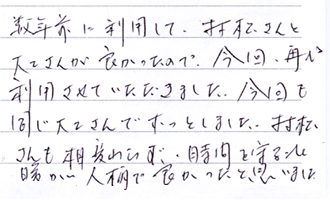 数年前に利用して、村松さんと
大工さんが良かったので、今回、再び
利用させていただきました。今回も
同じ大工さんでホッとしました。村松
さんも相変わらず、時間を守るし
暖かい人柄で良かったと思いました